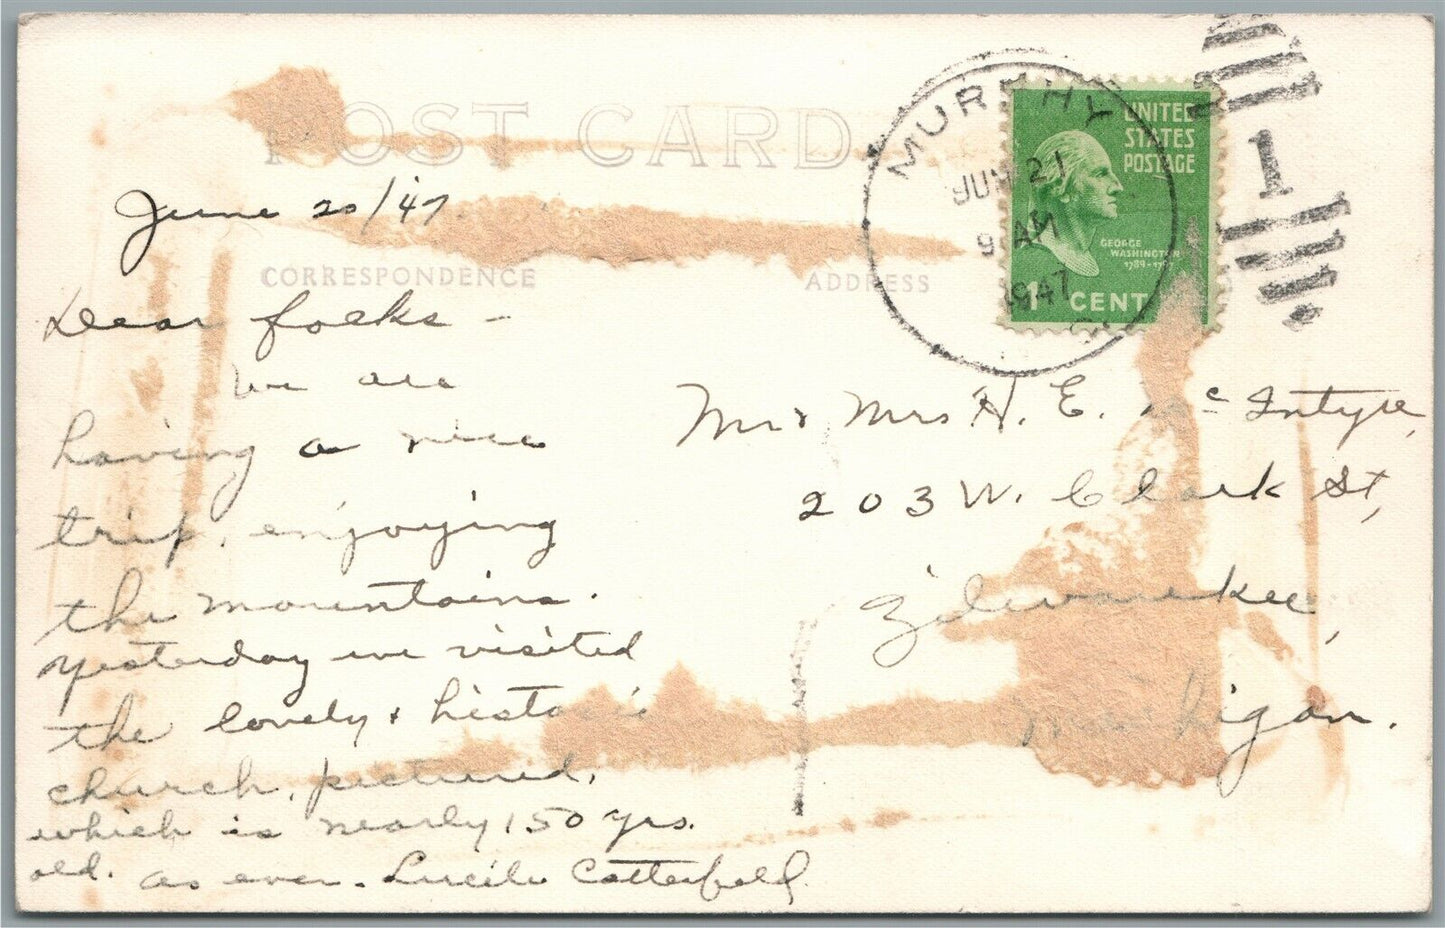 POST CARD
MURPHY
JUN 21
9 AM
1947
1
UNITED
STATES
POSTAGE
GEORGE
WASHINGTON
1789-
1 CENT
June 20/47
CORRESPONDENCE
ADDRESS
Dear folks -
we are
having a nice
trip, enjoying
the mountains.
yesterday we visited
the lovely + historic
church, pictured,
which is nearly 150 yrs.
old. as ever - Lucile Catterfeld
Mr & Mrs H. E. Mc Intyre,
203 W. Clark St,
Zilwaukee,
Michigan.